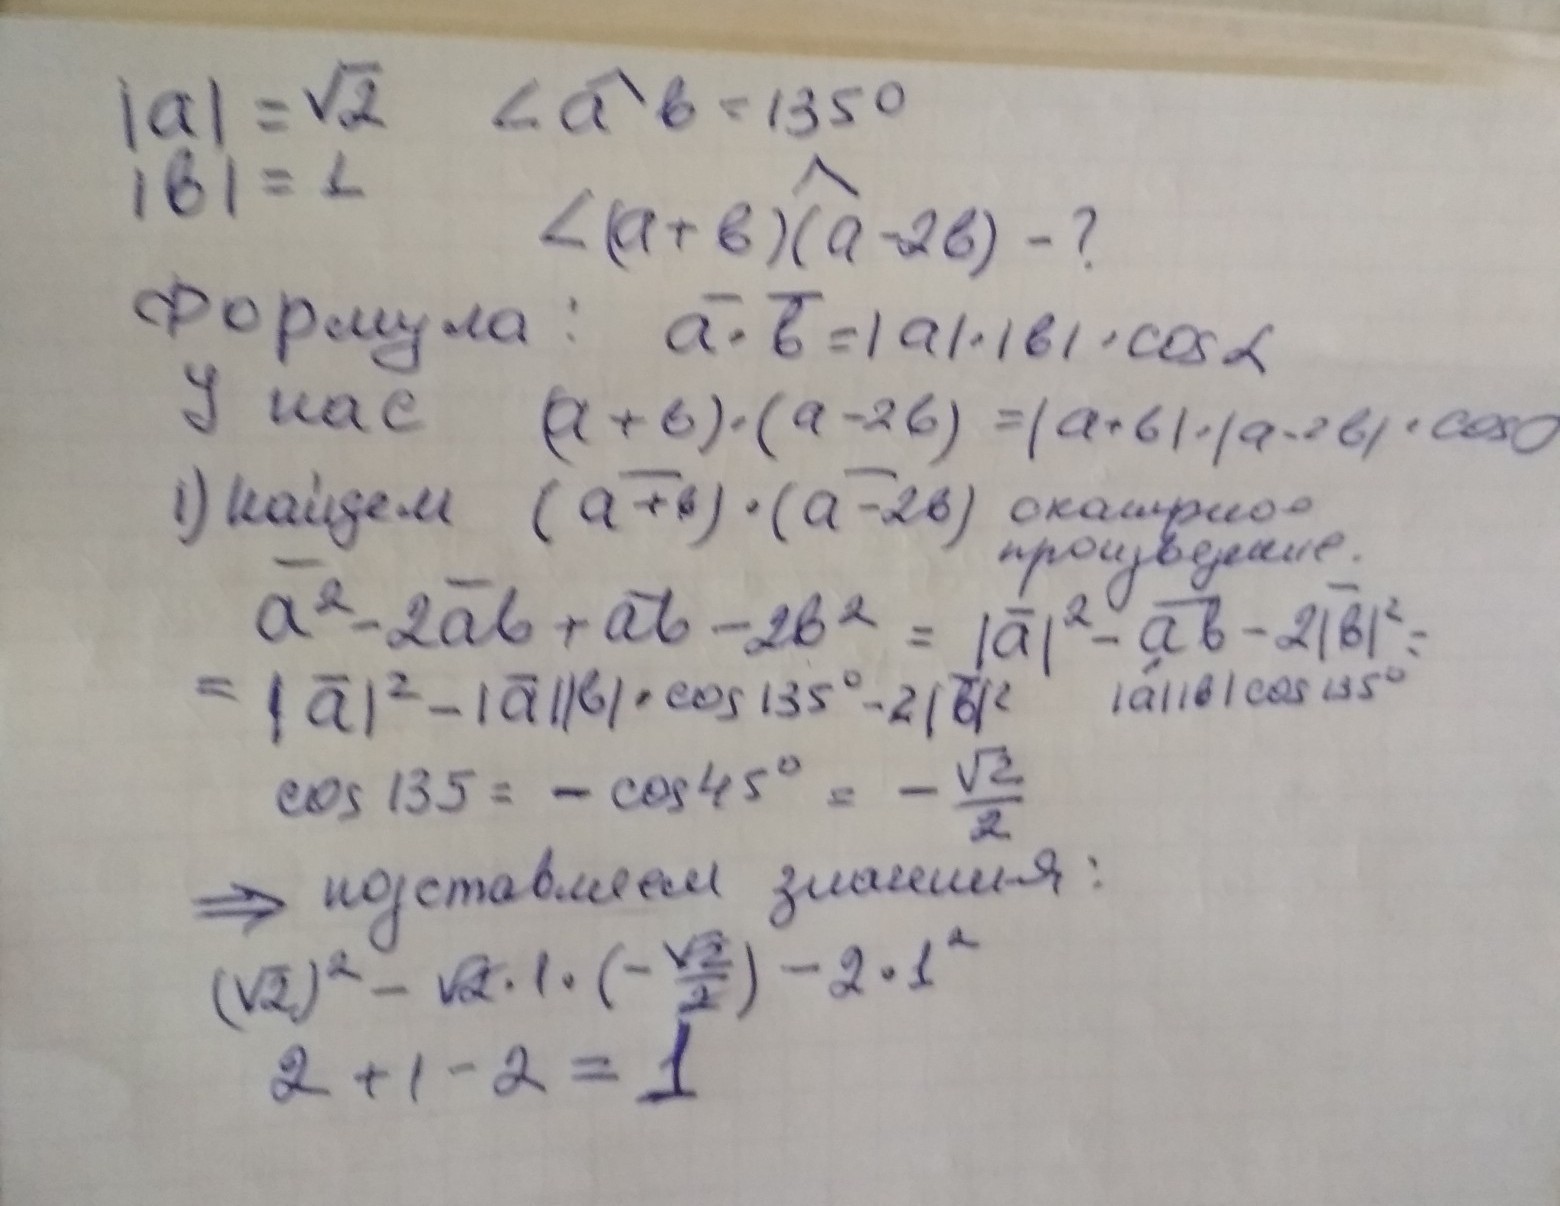 |a| = √2 ∠ a^в = 135°
|в| = 1
∠(a + в)^(a - 2в) - ?
Формула: a̅ · в̅ = |a| · |в| · cos α
У нас (a + в) · (a - 2в) = |a + в| · |a - 2в| · cos
1) Найдем (a + в) · (a - 2в) скалярное
произведение.
a̅² - 2a̅в + a̅в - 2в² = |a̅|² - a̅в̅ - 2|в̅|² =
= |a̅|² - |a̅||в| · cos 135° - 2|в̅|² |a||в| cos 135°
cos 135 = - cos 45° = - √2/2
⇒ подставляем значения:
(√2)² - √2 · 1 · (- √2/2) - 2 · 1²
2 + 1 - 2 = 1